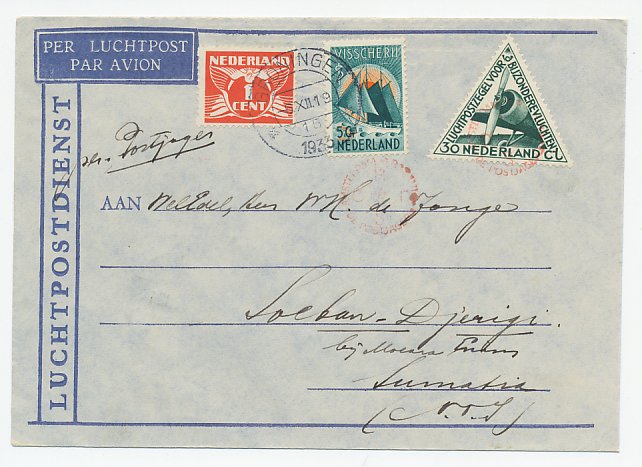 PER LUCHTPOST
PAR AVION
LUCHTPOSTDIENST
NEDERLAND
1½
CENT
VISSCHERIJ
5 ct
NEDERLAND
LUCHTPOSTZEGEL VOOR
BIJZONDERE VLUCHTEN
30 NEDERLAND CT
XII.19
1933
per Postjager
AAN WelEdel. Heer W.H. de Jonge
Soeban-Djerigi.
bij Moeara Enim
Sumatra
(N.O.I)